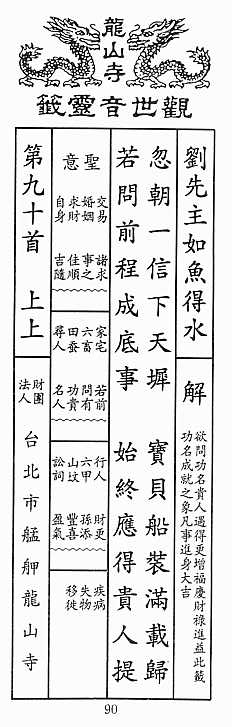 龍山寺
觀世音靈籤
劉先主如魚得水
解
欲問功名貴人遇得更增福慶財祿進益此籤
功名成就之象凡事進身大吉
忽朝一信下天墀 寶貝船裝滿載歸
若問前程成底事 始終應得貴人提
聖意
交易 諸求
婚姻 事之
求財 佳順
自身 吉隨
家宅 若前
六畜 問有
田蚕 功貴
尋人 名人
行人 財更
六甲 孫添
山坟 豐喜
訟詞 盈氣
疾病
失物
移徙
第九十首 上上
財團
法人
台北市艋舺龍山寺
90